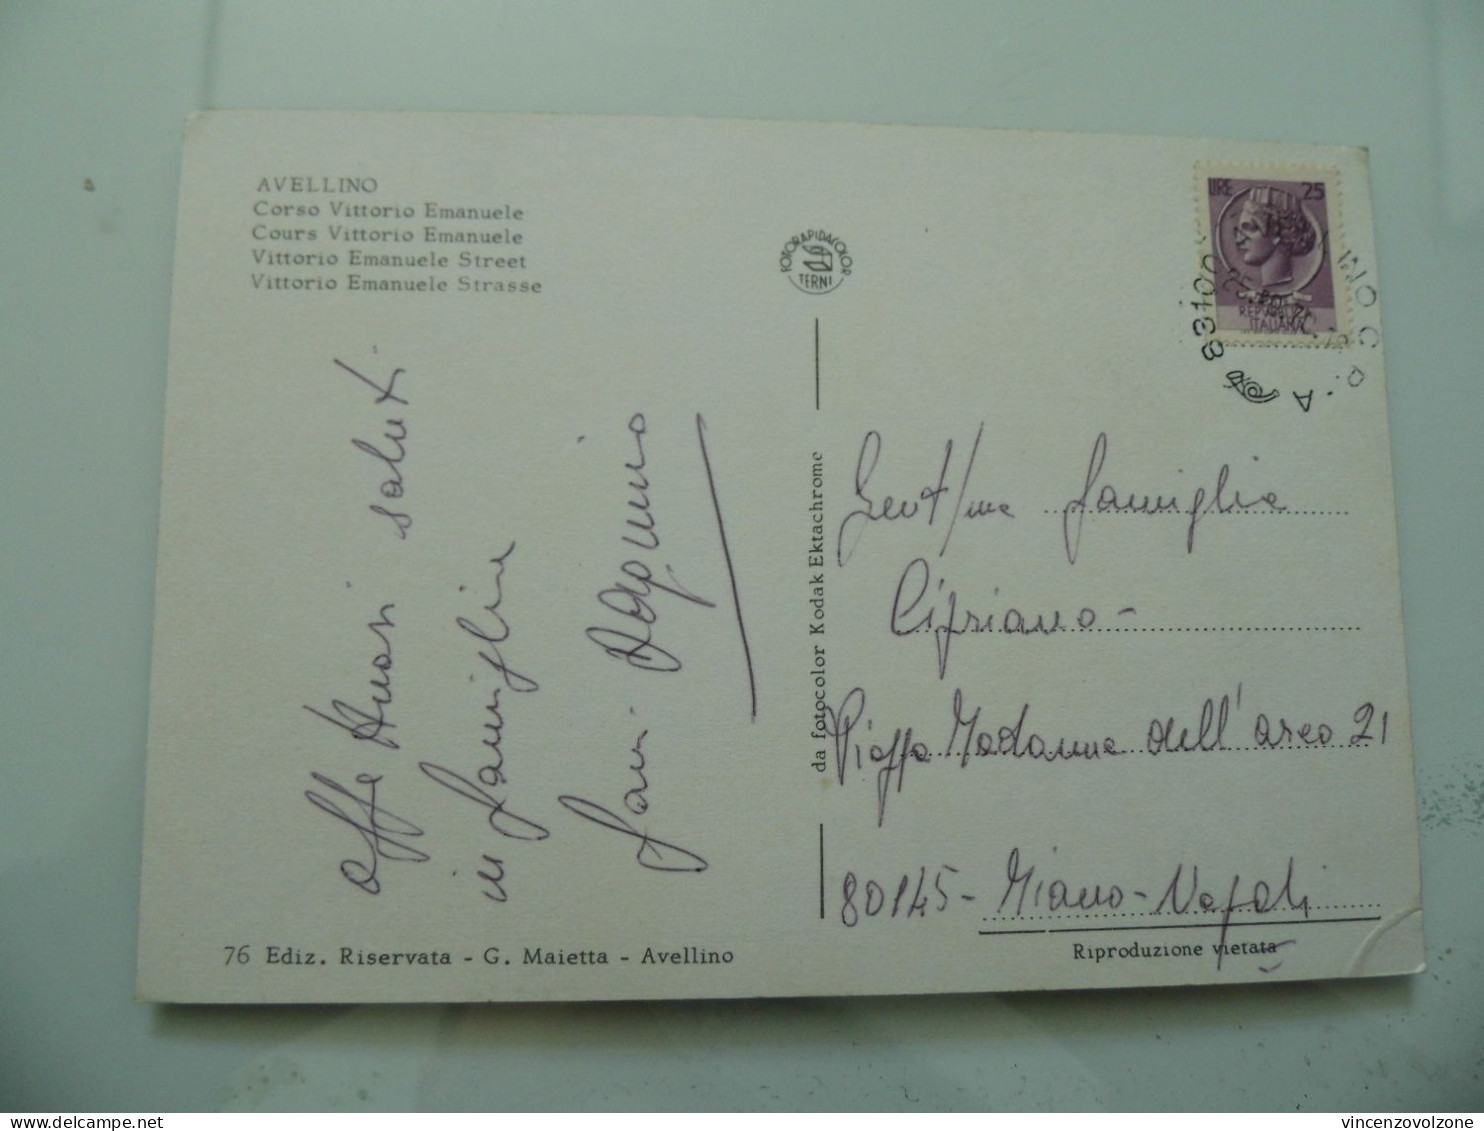 AVELLINO
Corso Vittorio Emanuele
Cours Vittorio Emanuele
Vittorio Emanuele Street
Vittorio Emanuele Strasse
FOTORAPIDACOLOR
TERNI
LIRE 25
REPUBBLICA
ITALIANA
83100
saluti
in famiglia
fam.
da fotocolor Kodak Ektachrome
Gent/me famiglia
Cipriano -
Piazza Madonna dell'arco 21
80145 - Miano - Napoli
76 Ediz. Riservata - G. Maietta - Avellino
Riproduzione vietata
vincenzovolzone